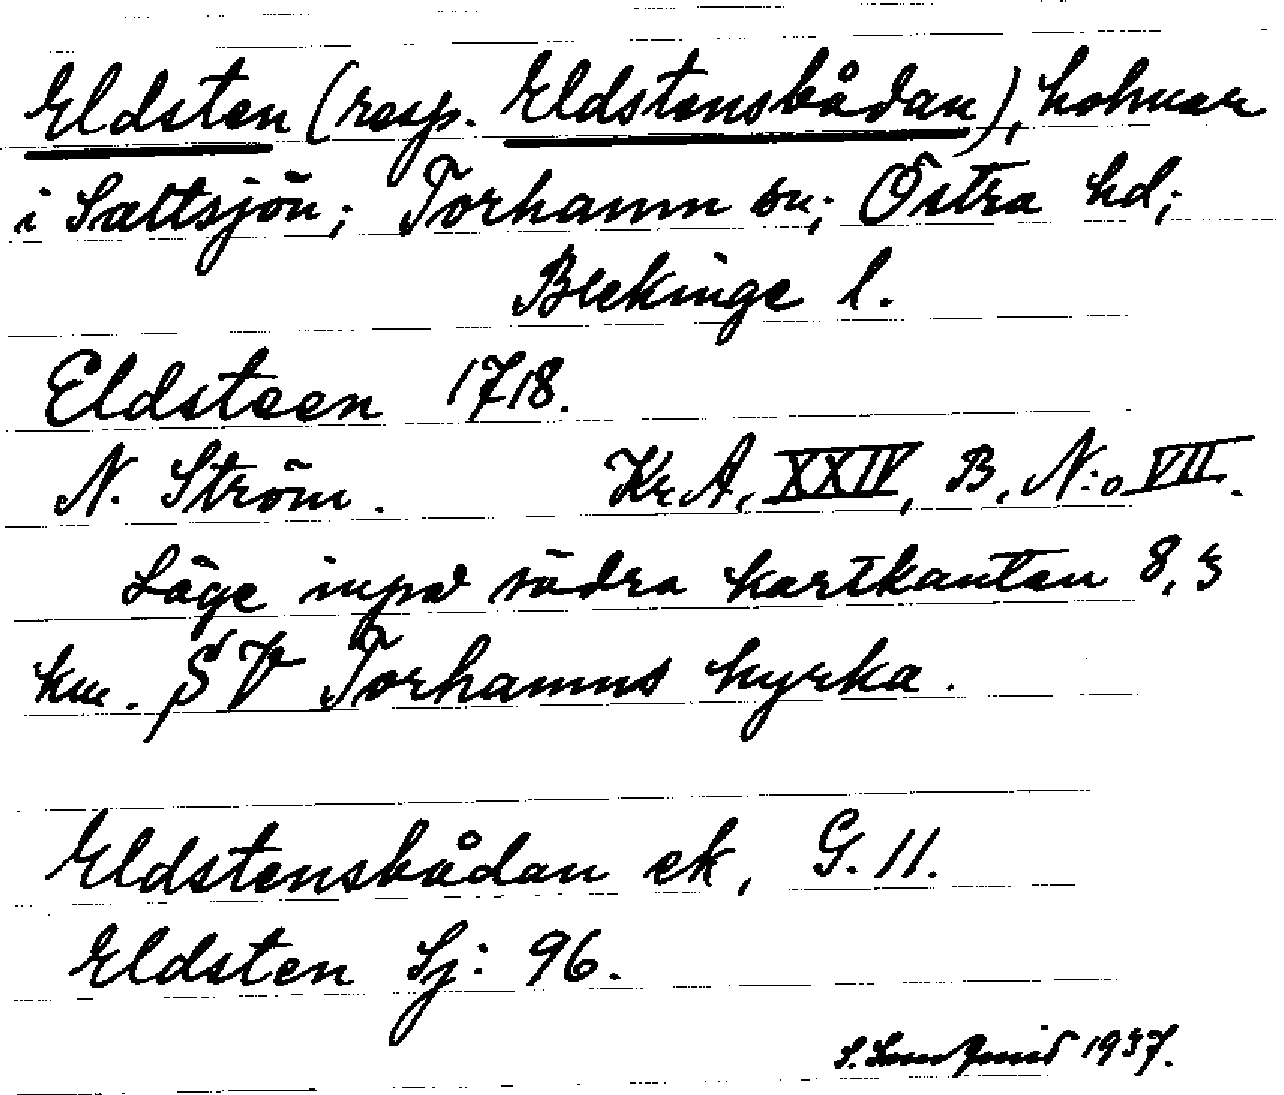 Eldsten (resp. Eldstensbådan), holmar
i Saltsjön; Torhamn sn; Östra hd;
Blekinge l.
Eldsteen 1718.
N. Ström. Kr.A, XXIV, B, N:o VII.
Läge inpå södra kartkanten 8,3
km. SV Torhamns kyrka.
Eldstensbådan ek, G. 11.
Eldsten Sj: 96.
S. 1937.